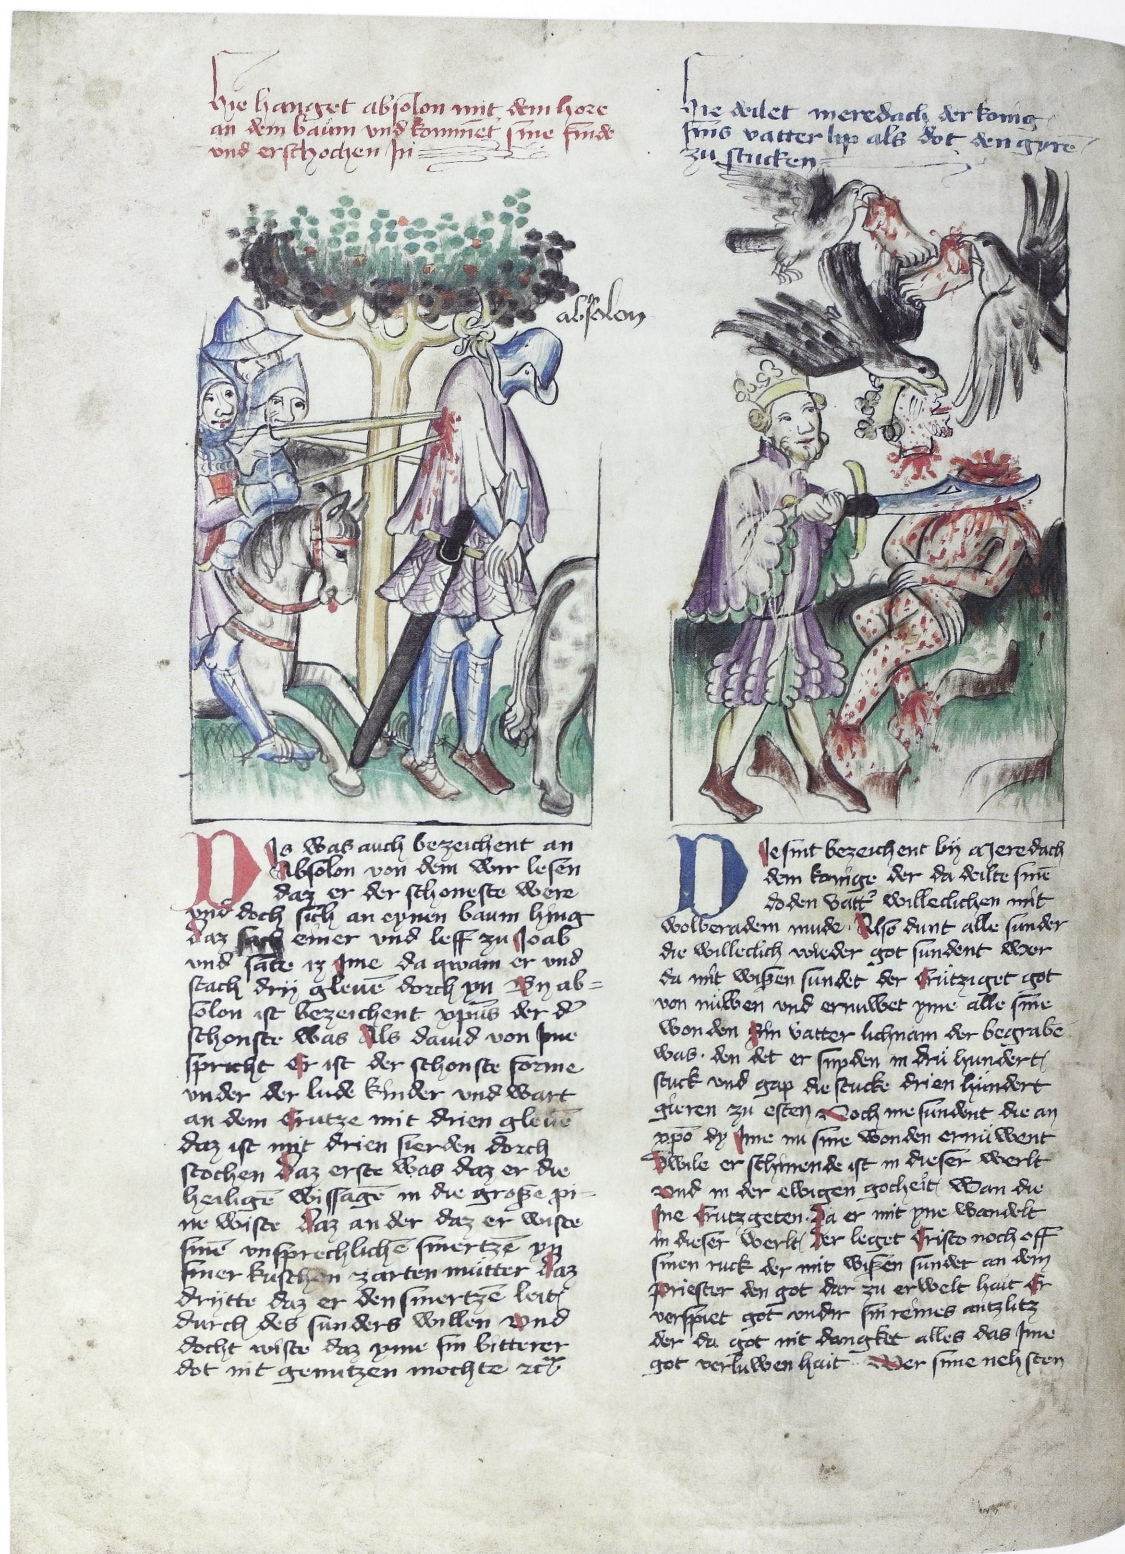 Hie hanget absolon mit dem hore
an dem baum und kommet sine finde
und erstochen In
absolon
Dis was auch bezeichent an
Absolon von dem wir lesen
daz er der schoneste were
vnd doch sich an eynen baum hing
daz sach einer vnd leff zu Joab
vnd satte iz Ime da qwam er vnd
stach drij gleuē dorch yn By ab=
solon ist bezeichent xpūs der d'
schonste was Als dauid von Ime
spricht Er ist der schonste forme
vnder der lude kinder vnd wart
an dem Crutze mit drien gleuē
daz ist mit drien sierden dorch
stochen Daz erste was daz er die
heiligē wissagē in die große pi=
ne wiste Daz an der daz er wiste
sinē vnsprechlichē smertzē yn
siner kuschen zarten mutter Daz
drijtte daz er den smertzē leit
durch des sunders willen vnd
docht wiste daz yme sin bitterer
dot nit genutzen mochte rc
Hie deilet meredach der konig
sins vatter lip als dot den gyrē
zu stucken
Die sint bezeichent bij Meredach
dem konige der da deilte sinē
doden vatt' willeclichen mit
wolberadem mude Also dunt alle sunder
die willeclich wieder got sundent wer
da mit wißen sundet der Crutziget got
von nuwen vnd ernuwet yme alle sine
wonden Sin vatter lichnam der begrabē
was den det er snyden in drü hundert
stuck vnd gap die stucke drien hundert
gieren zu essen Noch me sundent die an
xpō dy Ime nu sine wonden ernuwent
Dwile er schinende ist in dieser werlt
vnd in der ewigen gocheit wan die
Ine Crutzgeten Da er mit yne wandelt
in dieser werlt Der leget Cristo noch off
sinen ruck der mit wißen sundet an dem
Priester den got dar zu erwelt hait Er
verspiet got vnder sin reines antzlitz
der da got nit dangket alles das Ime
got verluwen hait Wer sine nehsten